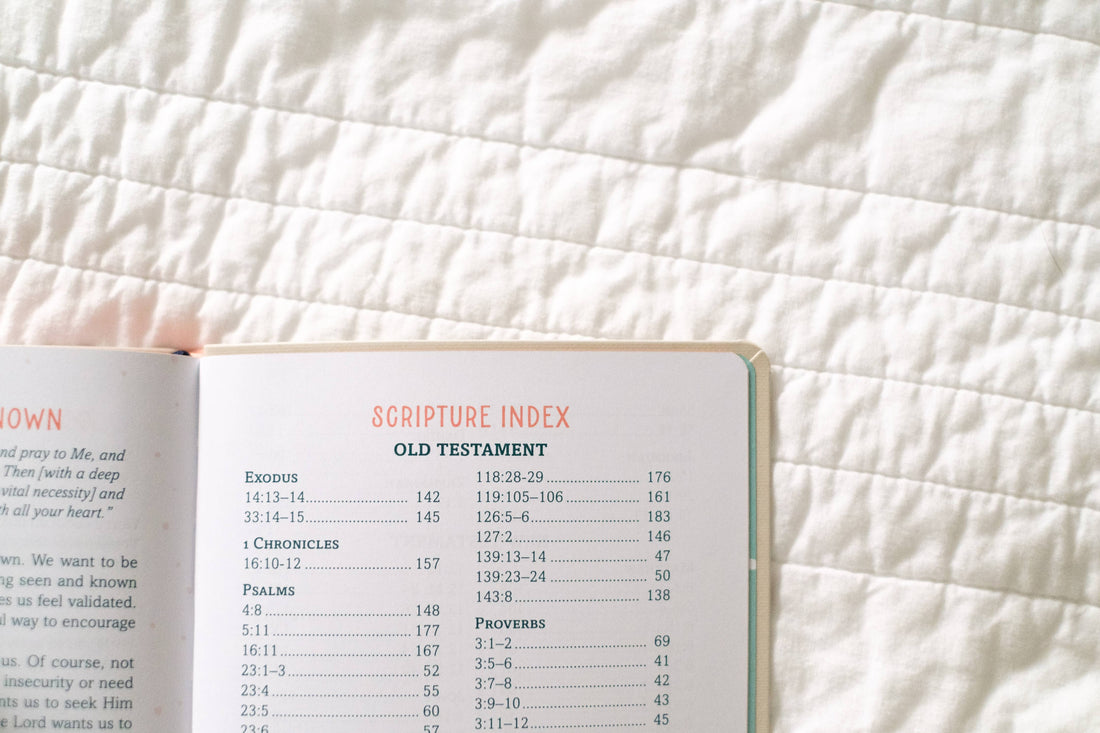 NOWN
nd pray to Me, and
Then [with a deep
vital necessity] and
th all your heart."
wn. We want to be
ng seen and known
es us feel validated.
ul way to encourage
us. Of course, not
insecurity or need
nts us to seek Him
e Lord wants us to
SCRIPTURE INDEX
OLD TESTAMENT
EXODUS
14:13–14 ........................ 142
33:14–15 ........................ 145
1 CHRONICLES
16:10-12 ........................ 157
PSALMS
4:8 ........................ 148
5:11 ........................ 177
16:11 ........................ 167
23:1–3 ........................ 52
23:4 ........................ 55
23:5 ........................ 60
23:6 ........................ 57
118:28-29 ........................ 176
119:105–106 ........................ 161
126:5–6 ........................ 183
127:2 ........................ 146
139:13–14 ........................ 47
139:23–24 ........................ 50
143:8 ........................ 138
PROVERBS
3:1–2 ........................ 69
3:5–6 ........................ 41
3:7–8 ........................ 42
3:9–10 ........................ 43
3:11–12 ........................ 45